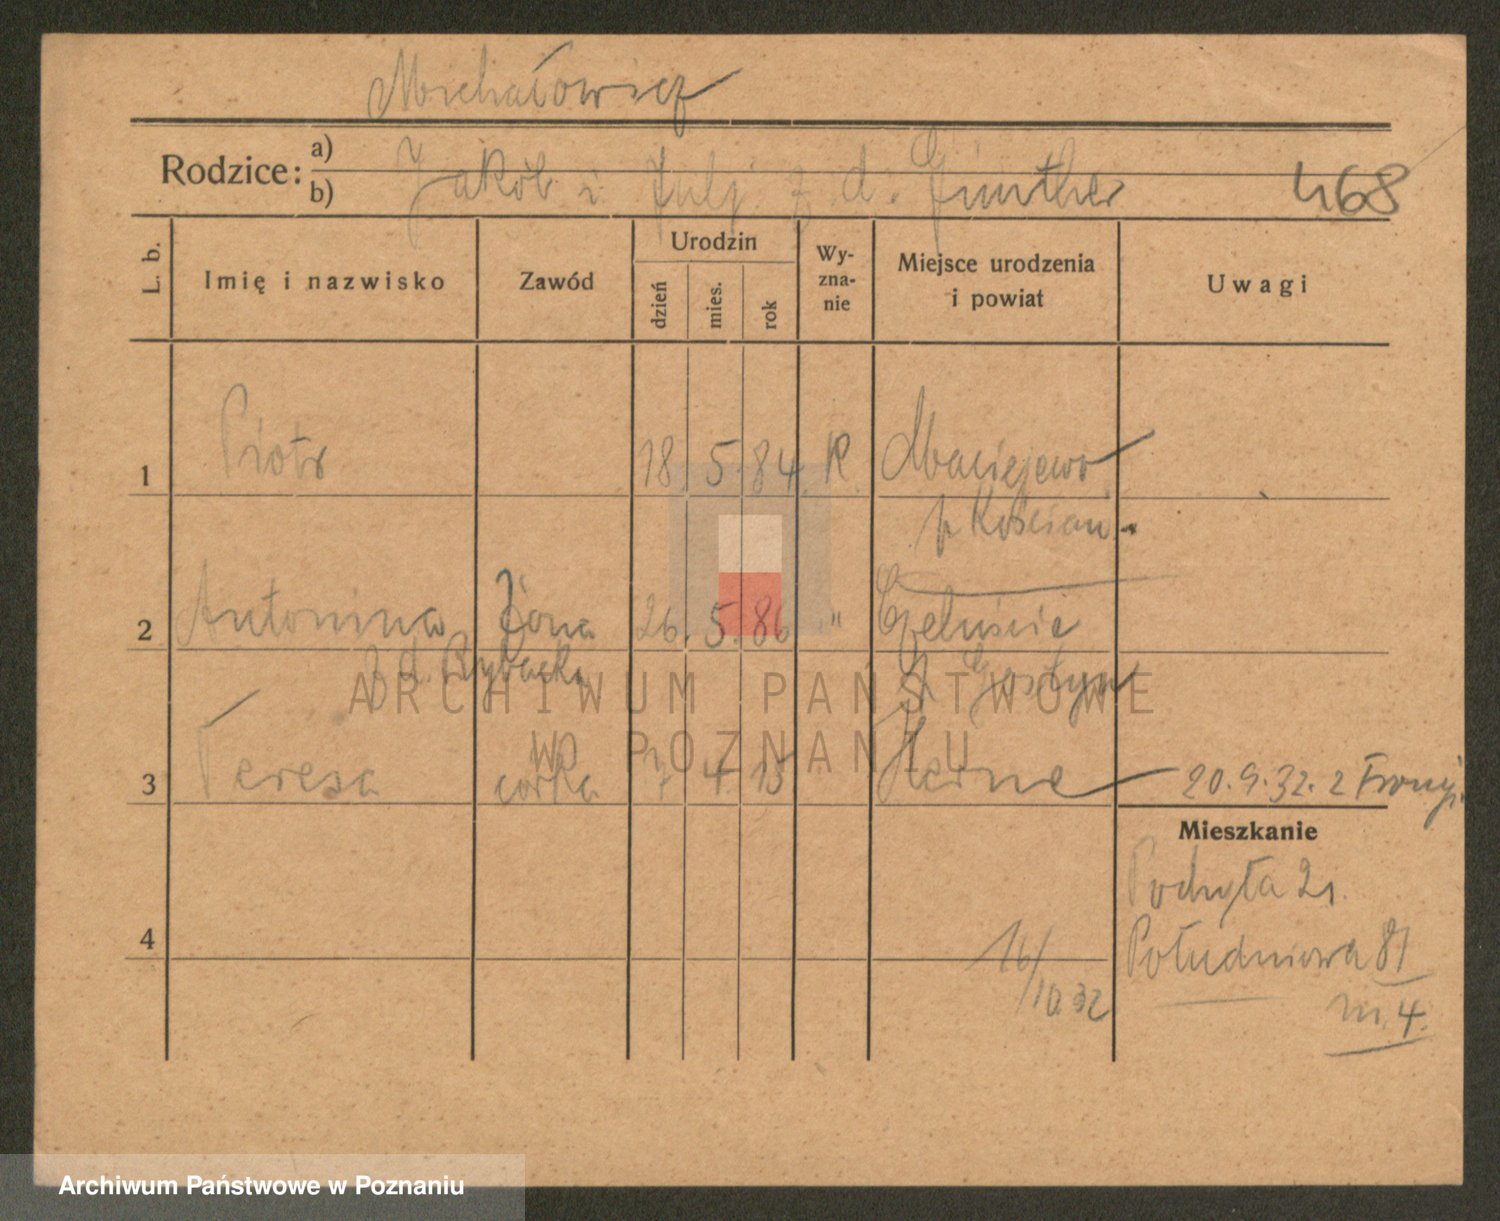 Michałowicz
Rodzice: a)
b)
Jakób i Julj. z d. Günther 468
L. b.
Imię i nazwisko
Zawód
Urodzin
dzień
mies.
rok
Wy-
zna-
nie
Miejsce urodzenia
i powiat
Uwagi
1 Piotr 18. 5. 84. R. Maciejewo
p Kościan
2 Antonina Żona 26. 5. 86 " Czeluścin
z d. Rybacka p Gostyń
3 Teresa córka 7 4. 13 Herne 20.9.32. z
Mieszkanie
Pochyła 21.
4
Południowa 81
m. 4.
16/10 32
ARCHIWUM PAŃSTWOWE
W POZNANIU
Archiwum Państwowe w Poznaniu